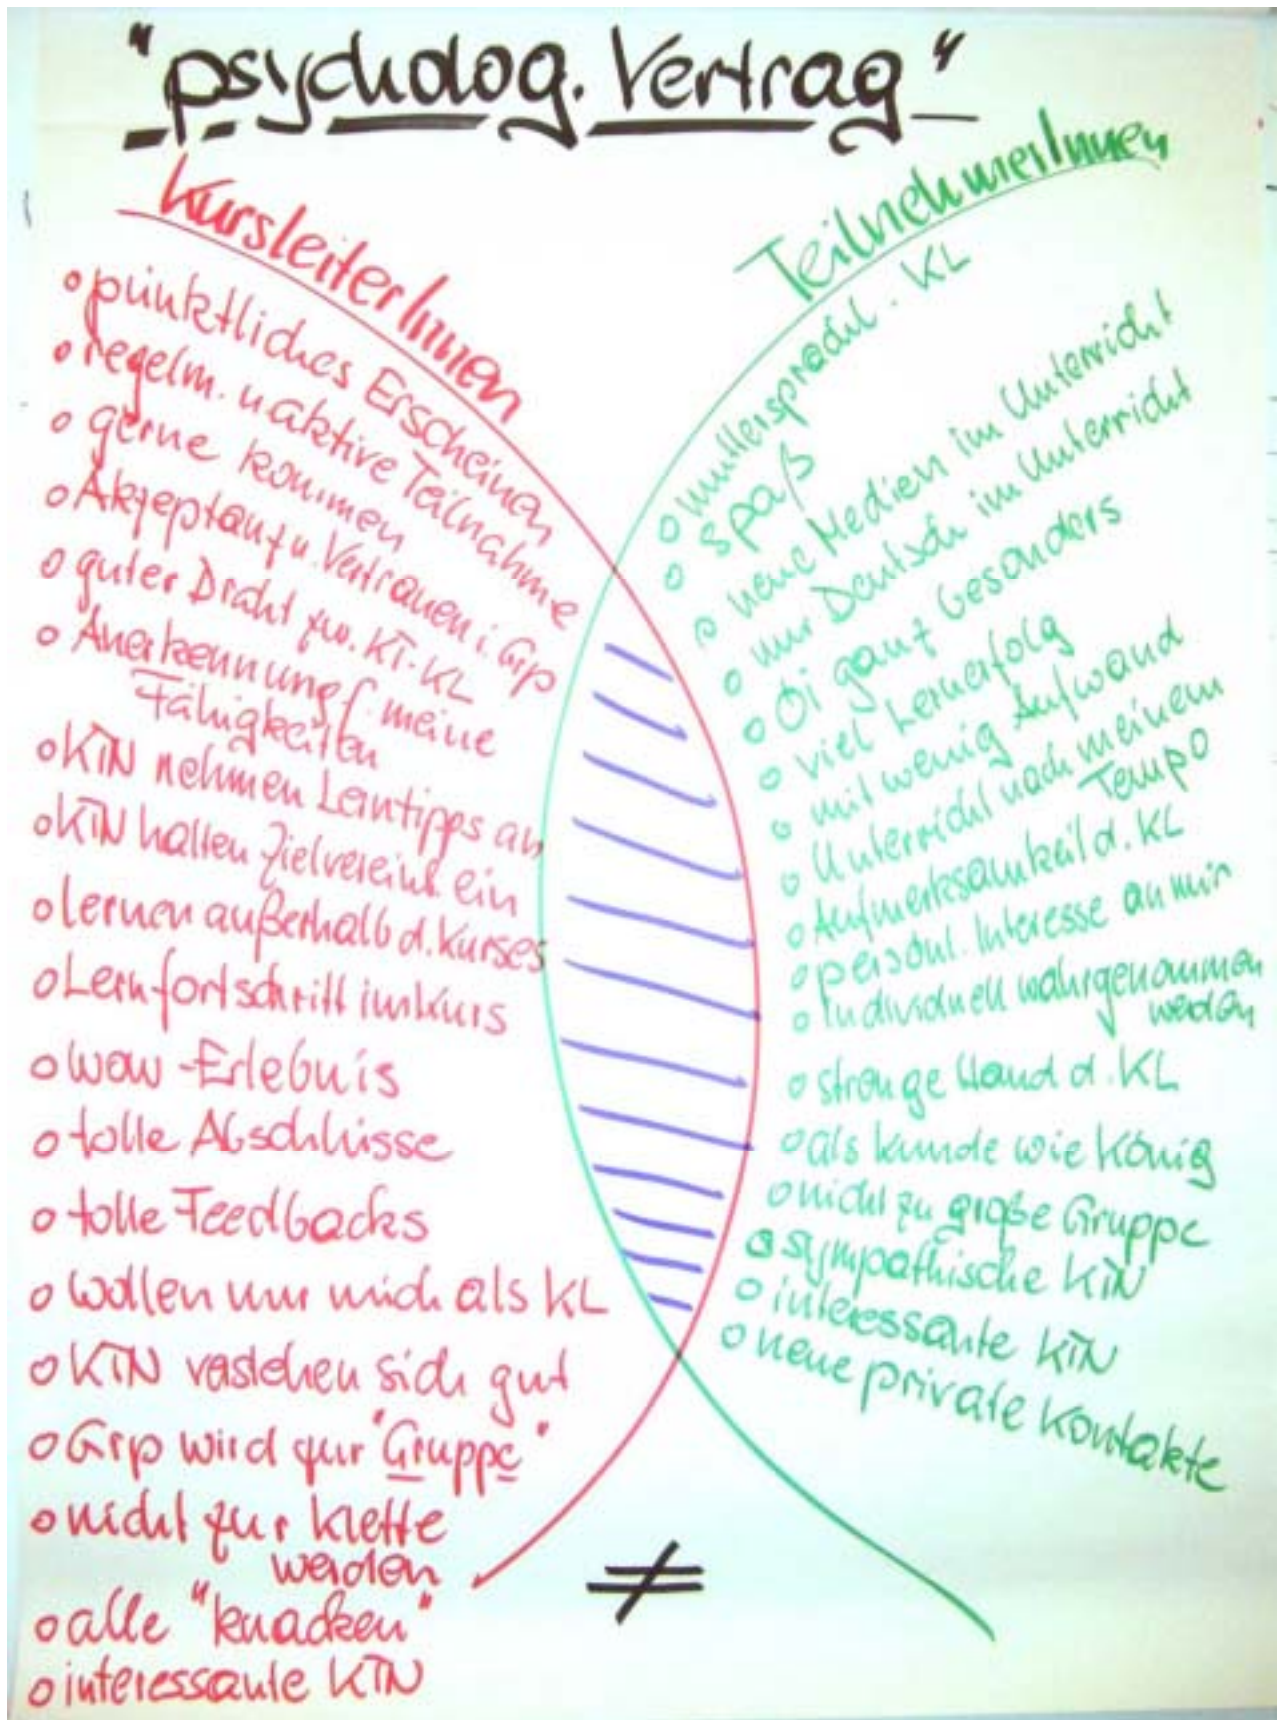 "psycholog. Vertrag"
KursleiterInnen
o pünktliches Erscheinen
o regelm. u aktive Teilnahme
o gerne kommen
o Akzeptanz u. Vertrauen i. Grp
o guter Draht zw. KT-KL
o Anerkennung f. meine
Fähigkeiten
o KTN nehmen Lerntipps an
o KTN halten Zielvereinb. ein
o lernen außerhalb d. Kurses
o Lernfortschritt im Kurs
o wow-Erlebnis
o tolle Abschlüsse
o tolle Feedbacks
o wollen nur mich als KL
o KTN verstehen sich gut
o Grp wird zur "Gruppe"
o nicht zur Klette
werden
o alle "knacken"
o interessante KTN
TeilnehmerInnen
o muttersprachl. KL
o Spaß
o neue Medien im Unterricht
o nur Deutsch im Unterricht
o ganz besonders
o viel Lernerfolg
o mit wenig Aufwand
o Unterricht nach meinem
Tempo
o Aufmerksamkeit d. KL
o persönl. Interesse an mir
o Individuell wahrgenommen
werden
o strenge Hand d. KL
o als Kunde wie König
o nicht zu große Gruppe
o sympathische KTN
o interessante KTN
o neue private Kontakte
≠